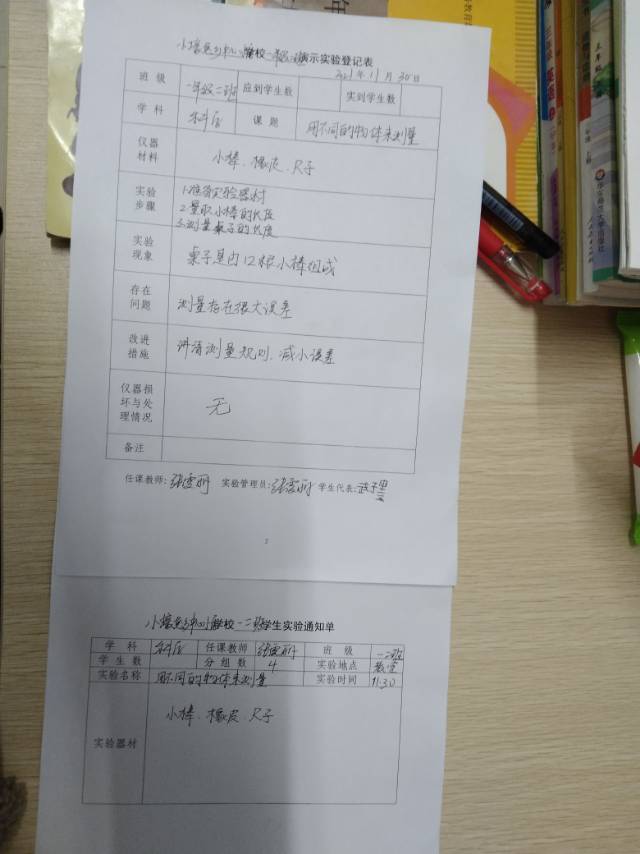 学校一年级二班演示实验登记表
2021年11月30日
班级 一年级二班 应到学生数 实到学生数
学科 科学 课题 用不同的物体来测量
仪器材料 小棒、橡皮、尺子
实验步骤 1.准备实验器材
2.量取小棒的长度
3.测量桌子的长度
实验现象 桌子是由12根小棒组成
存在问题 测量存在很大误差
改进措施 讲清测量规则、减小误差
仪器损坏与处理情况 无
备注
任课教师: 实验管理员: 学生代表:
2
学校一二班学生实验通知单
学科 科学 任课教师 班级 一二班
学生数 分组数 4 实验地点 教室
实验名称 用不同的物体来测量 实验时间 11.30
实验器材 小棒、橡皮、尺子